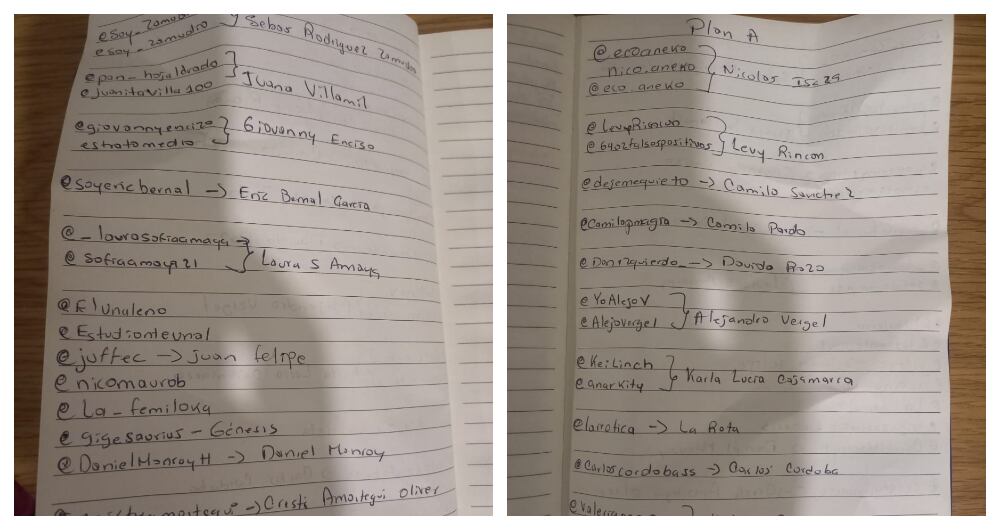 @soy_zamudro
@soy_zamudro } Sebas Rodriguez Zamudro
@pan_hojaldrado
@juanitavilla100 } Juana Villamil
@giovannyenciso
estratomedio } Giovanny Enciso
@soyericbernal → Eric Bernal Garcia
@_laurasofiaamaya
@sofiaamaya21 } Laura S Amaya
@Elunaleno
@Estudianteunal
@juffec → juan felipe
@nicomaurob
@La_femiloka
@gigesaurius - Génesis
@DanielMonroyH → Daniel Monroy
→ Cristi Amortegui Oliver
Plan A
@ecoaneko
nico.aneko
@eco_aneko } Nicolas
@LevyRincon
@6402falsospositivos } Levy Rincon
@dejemequieto → Camilo Sanchez
@Camilopmagra → Camilo Pardo
@Donizquierdo_ → Davido Rozo
@YoAlejoV
@Alejovergel } Alejandro Vergel
@KeiLinch
@anarkity } Karla Lucia Cajamarca
@larotica → La Rota
@Carloscordobass → Carlos Cordoba